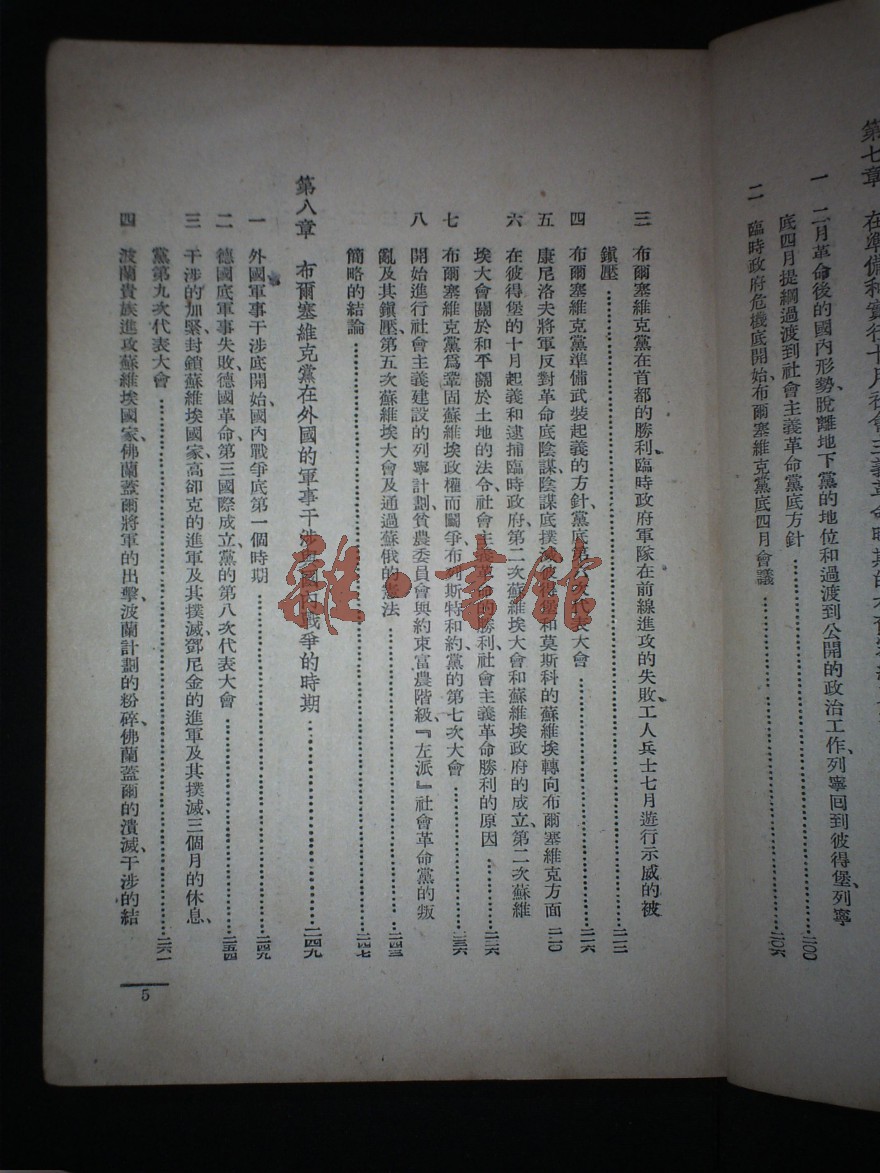 第七章
一 二月革命後的國內形勢、脫離地下黨的地位和過渡到公開的政治工作、列寧回到彼得堡、列寧
底四月提綱過渡到社會主義革命黨底方針……二〇〇
二 臨時政府危機底開始、布爾塞維克黨底四月會議……二〇六
三 布爾塞維克黨在首都的勝利、臨時政府軍隊在前線進攻的失敗、工人兵士七月遊行示威的被
鎮壓……二一二
四 布爾塞維克黨準備武裝起義的方針、黨底第六次代表大會……二一六
五 康尼洛夫將軍反對革命底陰謀、陰謀底撲滅、彼得堡和莫斯科的蘇維埃轉向布爾塞維克方面 二二〇
六 在彼得堡的十月起義和逮捕臨時政府、第二次蘇維埃大會和蘇維埃政府的成立、第二次蘇維
埃大會關於和平、關於土地的法令、社會主義革命的勝利、社會主義革命勝利的原因……二二六
七 布爾塞維克黨爲鞏固蘇維埃政權而鬭爭、布列斯特和約、黨的第七次大會……二三六
八 開始進行社會主義建設的列寧計劃、貧農委員會與約束富農階級、『左派』社會革命黨的叛
亂及其鎮壓、第五次蘇維埃大會及通過蘇俄的憲法……二四三
簡略的結論……二四七
第八章 布爾塞維克黨在外國的軍事干涉與國內戰爭的時期……二四九
一 外國軍事干涉底開始、國內戰爭底第一個時期……二四九
二 德國底軍事失敗、德國革命、第三國際成立、黨的第八次代表大會……二五四
三 干涉的加緊、封鎖蘇維埃國家、高卻克的進軍及其撲滅、鄧尼金的進軍及其撲滅、三個月的休息、
黨第九次代表大會……二六一
四 波蘭貴族進攻蘇維埃國家、佛蘭蓋爾將軍的出擊、波蘭計劃的粉碎、佛蘭蓋爾的潰滅、干涉的結
5
雜·書館